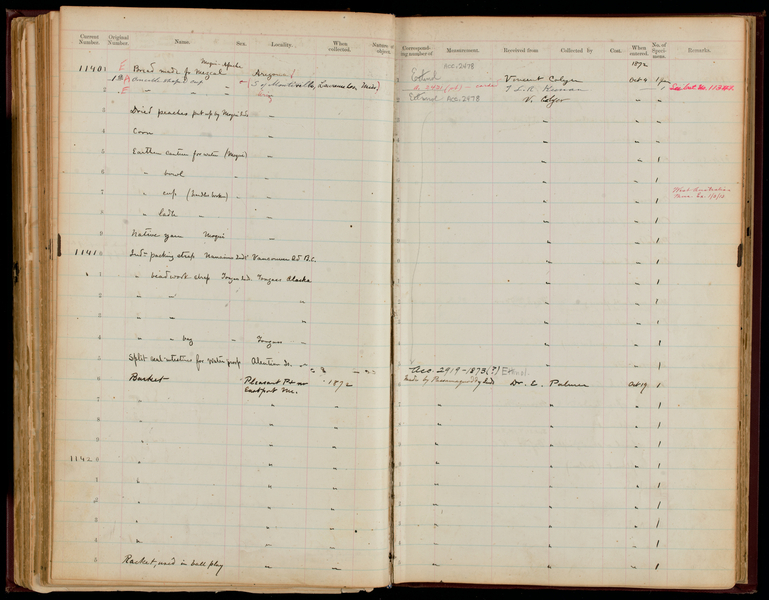 Current Number.
Original Number.
Name.
Sex.
Locality.
When collected.
Nature of object.
Corresponding number of
Measurement.
Received from
Collected by
Cost.
When entered.
No. of Specimens.
Remarks.
1872
Acc. 2478
Moqui-Apache
11401 E Bread made fr Mezcal Arizona Ethnol Vincent Colyer Oct 4
2 E " " " V. Colyer " "
Ethnol Acc. 2478
3 Dried peaches put up by Moqui Inds " " "
4 Corn " " "
5 Earthen canteen for water (Moqui) " " " 1
6 " bowl " " " " 1
7 " cup " " " 1
8 " ladle " " " " 1
9 Native yarn Moqui " " " 1
11410 Ind. packing strap Nanaimo Inds Vancouver Id B.C. " " 1
1 " beadwork strap Tongas Ind. Tongass Alaska " " 1
2 " " " " " 1
3 " " " " " 1
4 " " bag " Tongass " " " 1
5 Split seal intestines for water proof Aleutian Is. " " 1
Acc 2919-1873(?) Ethnol.
6 Basket Pleasant Pt nr 1872 made by Passamaquoddy Ind Dr. E. Palmer Oct 19 1
Eastport Me.
7 " " " " " 1
8 " " " " " 1
9 " " " " " 1
11420 " " " " " 1
1 " " " " " 1
2 " " " " " 1
3 " " " " " 1
4 " " " " " 1
5 Racket, used in ball play " " " " " 1